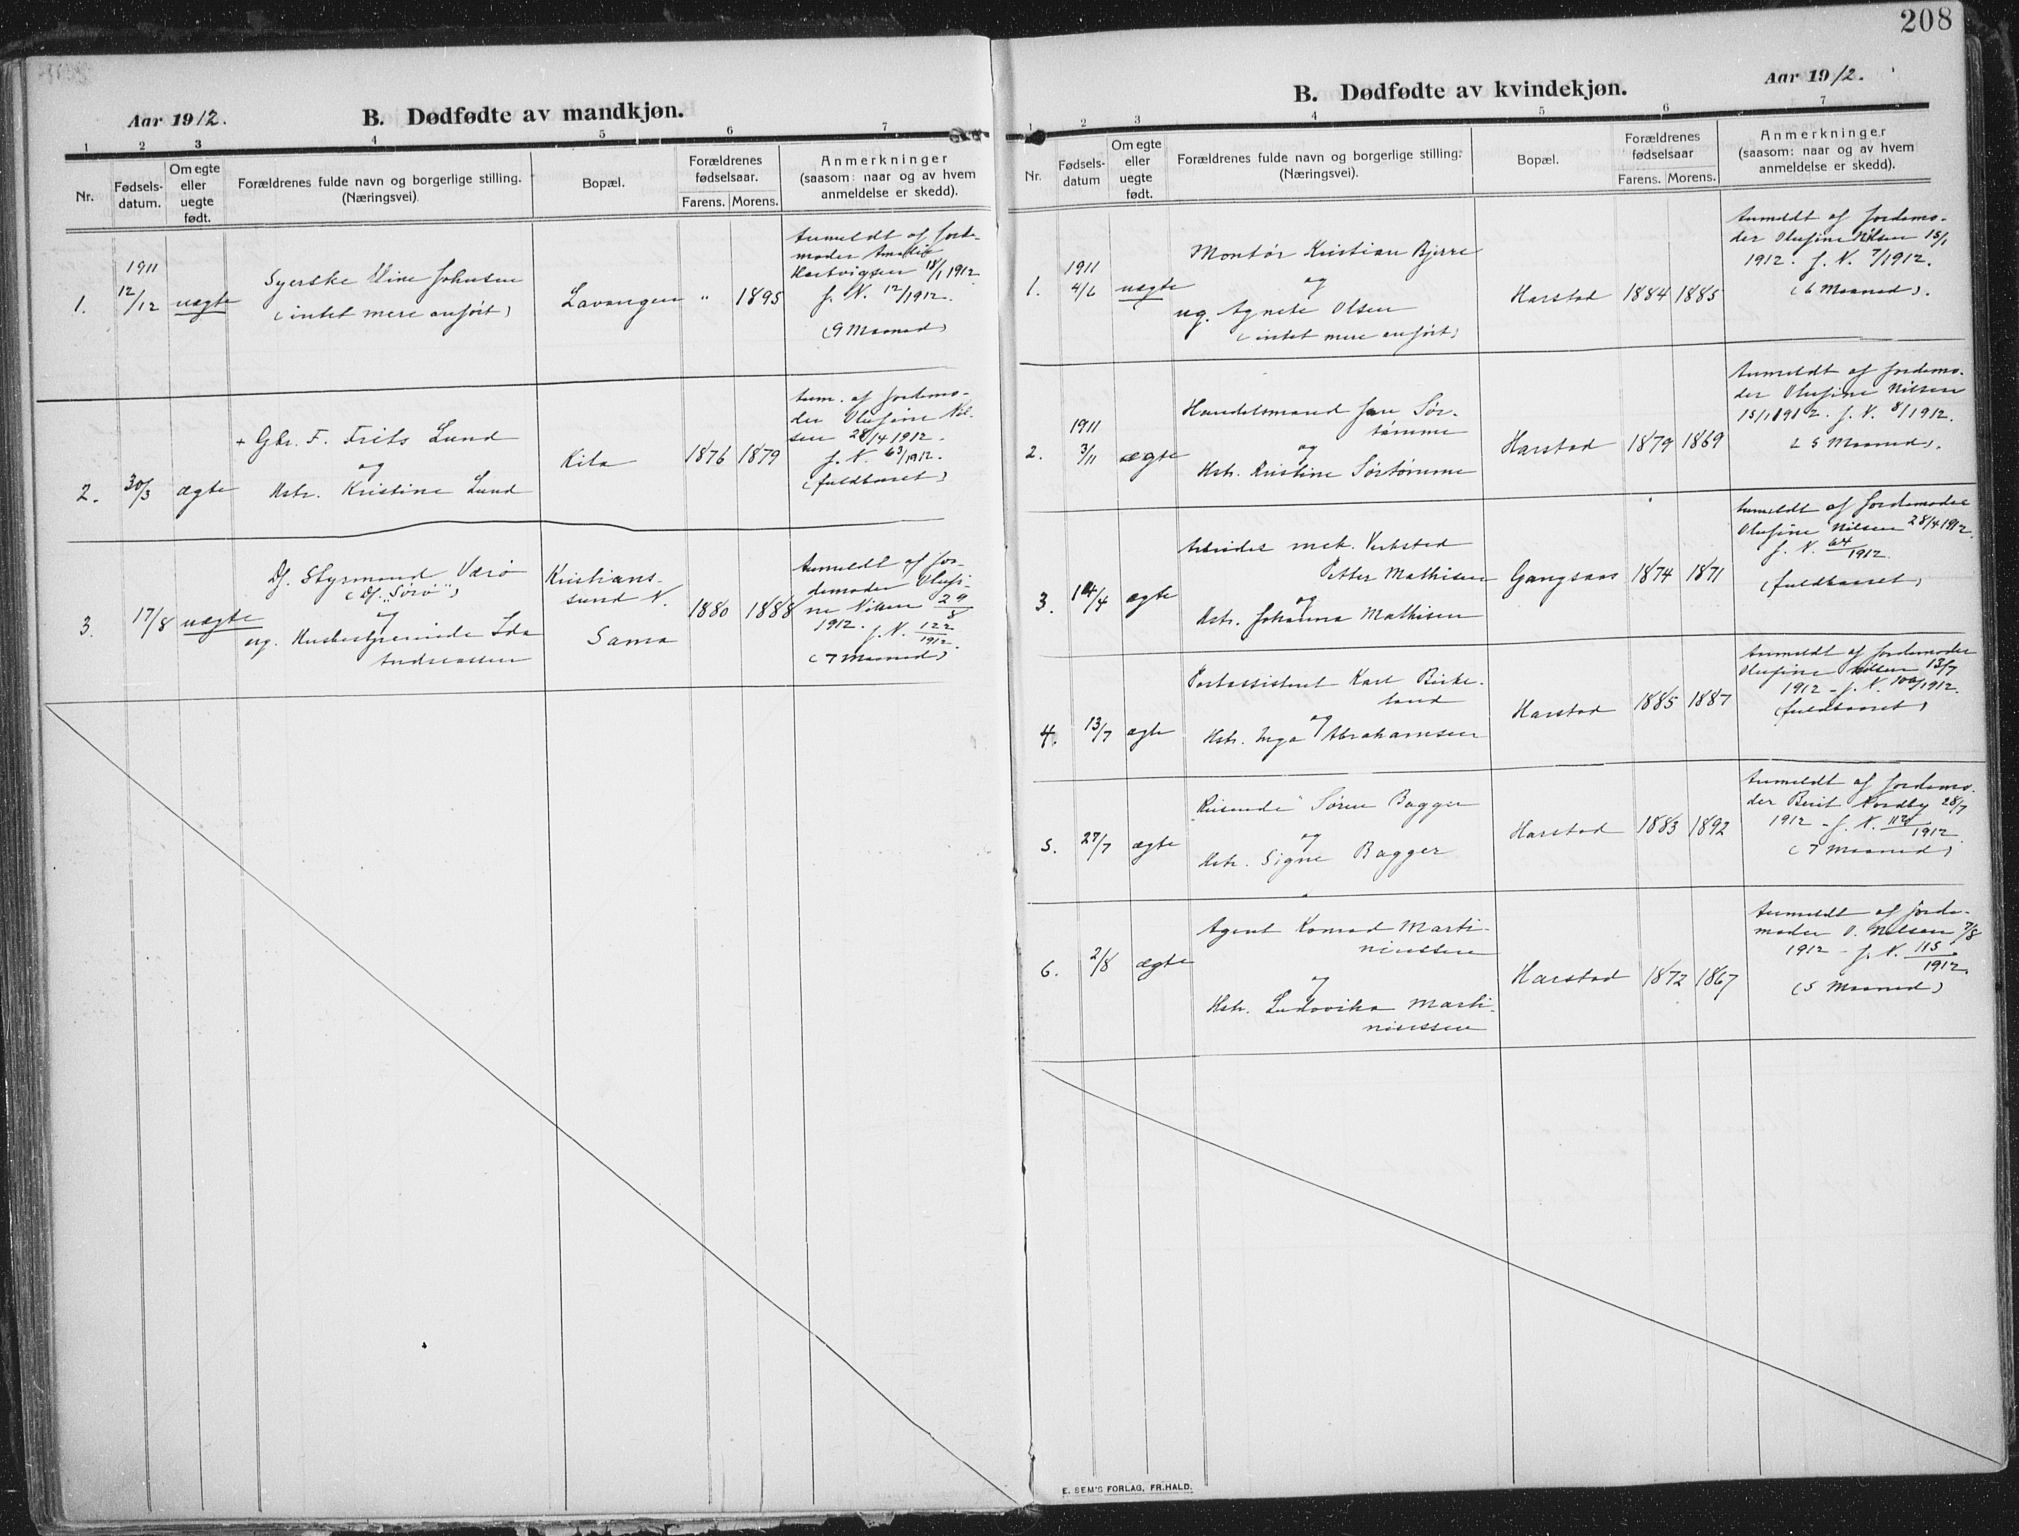 208
Aar 1912.
B. Dødfødte av mandkjøn.
1 2 3 4 5 6 7
Nr.
Fødsels-
datum.
Om egte
eller
uegte
født.
Forældrenes fulde navn og borgerlige stilling.
(Næringsvei).
Bopæl.
Forældrenes
fødselsaar.
Farens. Morens.
Anmerkninger
(saasom: naar og av hvem
anmeldelse er skedd).
1.
1911
12/12
uægte
Syerske Johnsen
(intet mere anført)
Lavangen
" 1895
Anmeldt af Jorde-
moder Amalie
Hartvigsen 18/1 1912.
J. N. 12/1912.
(9 Maaned)
2.
30/3
ægte
+ Gbr. F. Frits Lund
og
Hstr. Kristine Lund
Kila
1876 1879
Anm. af Jordemo-
der Olufine Nil-
sen 28/4 1912.
J. N. 63/1912.
(fuldbaaret)
3.
17/8
uægte
Df. Styrmand Værø
(Df. "Sørø")
og
ug. Husbestyrerinde Ida
Andreassen
Kristians-
sund N.
Sama
1880 1888
Anmeldt af Jor-
demoder Olufi-
ne Nilsen 29/8
1912. J. N. 122/1912.
(7 Maaned)
Aar 1912.
B. Dødfødte av kvindekjøn.
1 2 3 4 5 6 7
Nr.
Fødsels-
datum
Om egte
eller
uegte
født.
Forældrenes fulde navn og borgerlige stilling.
(Næringsvei).
Bopæl.
Forældrenes
fødselsaar
Farens. Morens.
Anmerkninger
(saasom: naar og av hvem
anmeldelse er skedd).
1.
1911
4/6
uægte
Montør Kristian Bjerre
og
ug. Agnete Olsen
(intet mere anført)
Harstad
1884 1885
Anmeldt af Jordemo-
der Olufine Nilsen 15/1
1912. J. N. 7/1912.
(6 Maaned).
2.
1911
3/11
ægte
Handelsmand Sør-
tømme
og
Hstr. Kristine Sørtømme
Harstad
1879 1869
Anmeldt af Jordemo-
der Olufine Nilsen
15/1 1912. J. N. 8/1912.
(5 Maaned).
3.
14/4
ægte
Arbeider mek. Verksted
Petter Mathisen
og
Hstr. Johanna Mathisen
Gangsaas
1874 1871
Anmeldt af Jordemoder
Olufine Nilsen 28/4 1912.
J. N. 64/1912.
(fuldbaaret)
4.
13/7
ægte
Postassistent Karl Birke-
land
og
Hstr. Inga Abrahamsen
Harstad
1885 1887
Anmeldt af Jordemoder
Olufine Nilsen 13/7
1912 – J. N. 100/1912.
(fuldbaaret)
5.
27/7
ægte
Reisende Søren Bagger
og
Hstr. Signe Bagger
Harstad
1883 1892
Anmeldt af Jordemo-
der Berit Nordby 28/7
1912 – J. N. 112/1912
(7 Maaned)
6.
2/8
ægte
Agent Konrad Marti-
niussen
og
Hstr. Ludovika Marti-
niussen
Harstad
1872 1867
Anmeldt af Jorde-
moder O. Nilsen 7/8
1912 – J. N. 115/1912.
(5 Maaned)
E. SEM'S FORLAG, FR.HALD.